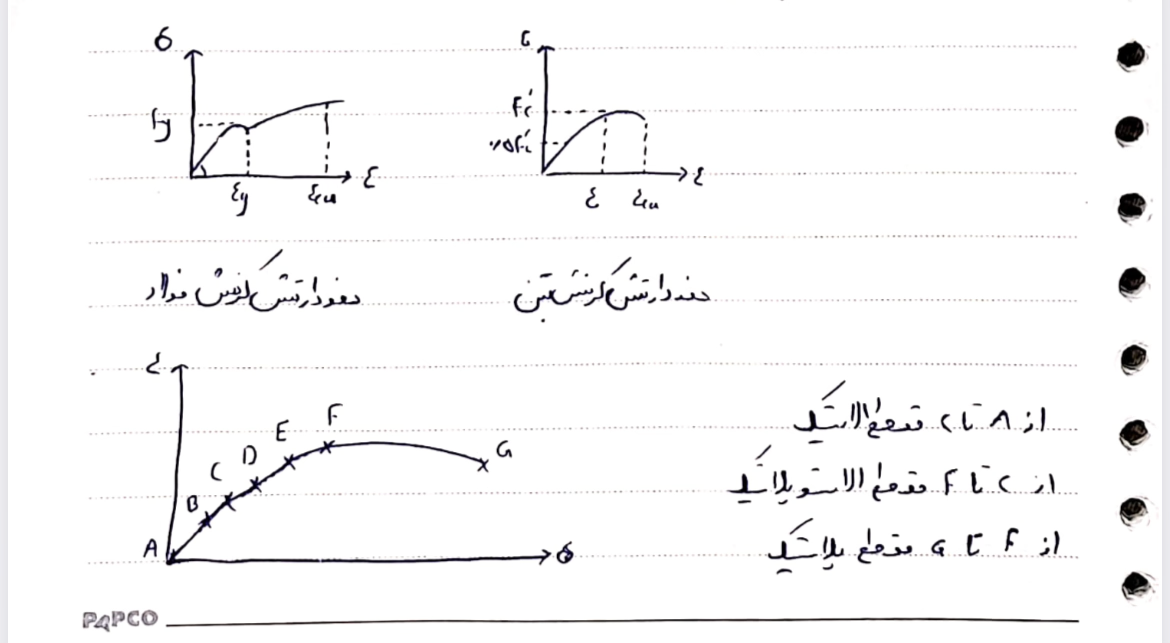 σ
σ
fy
f'c
۰/۵f'c
εy
εcu
ε
ε
εcu
ε
نمودار تنش کرنش فولاد
نمودار تنش کرنش بتن
ε
A
B
C
D
E
F
G
σ
از A تا C مقطع الاستیک
از C تا F مقطع الاستوپلاستیک
از F تا G مقطع پلاستیک
PAPCO